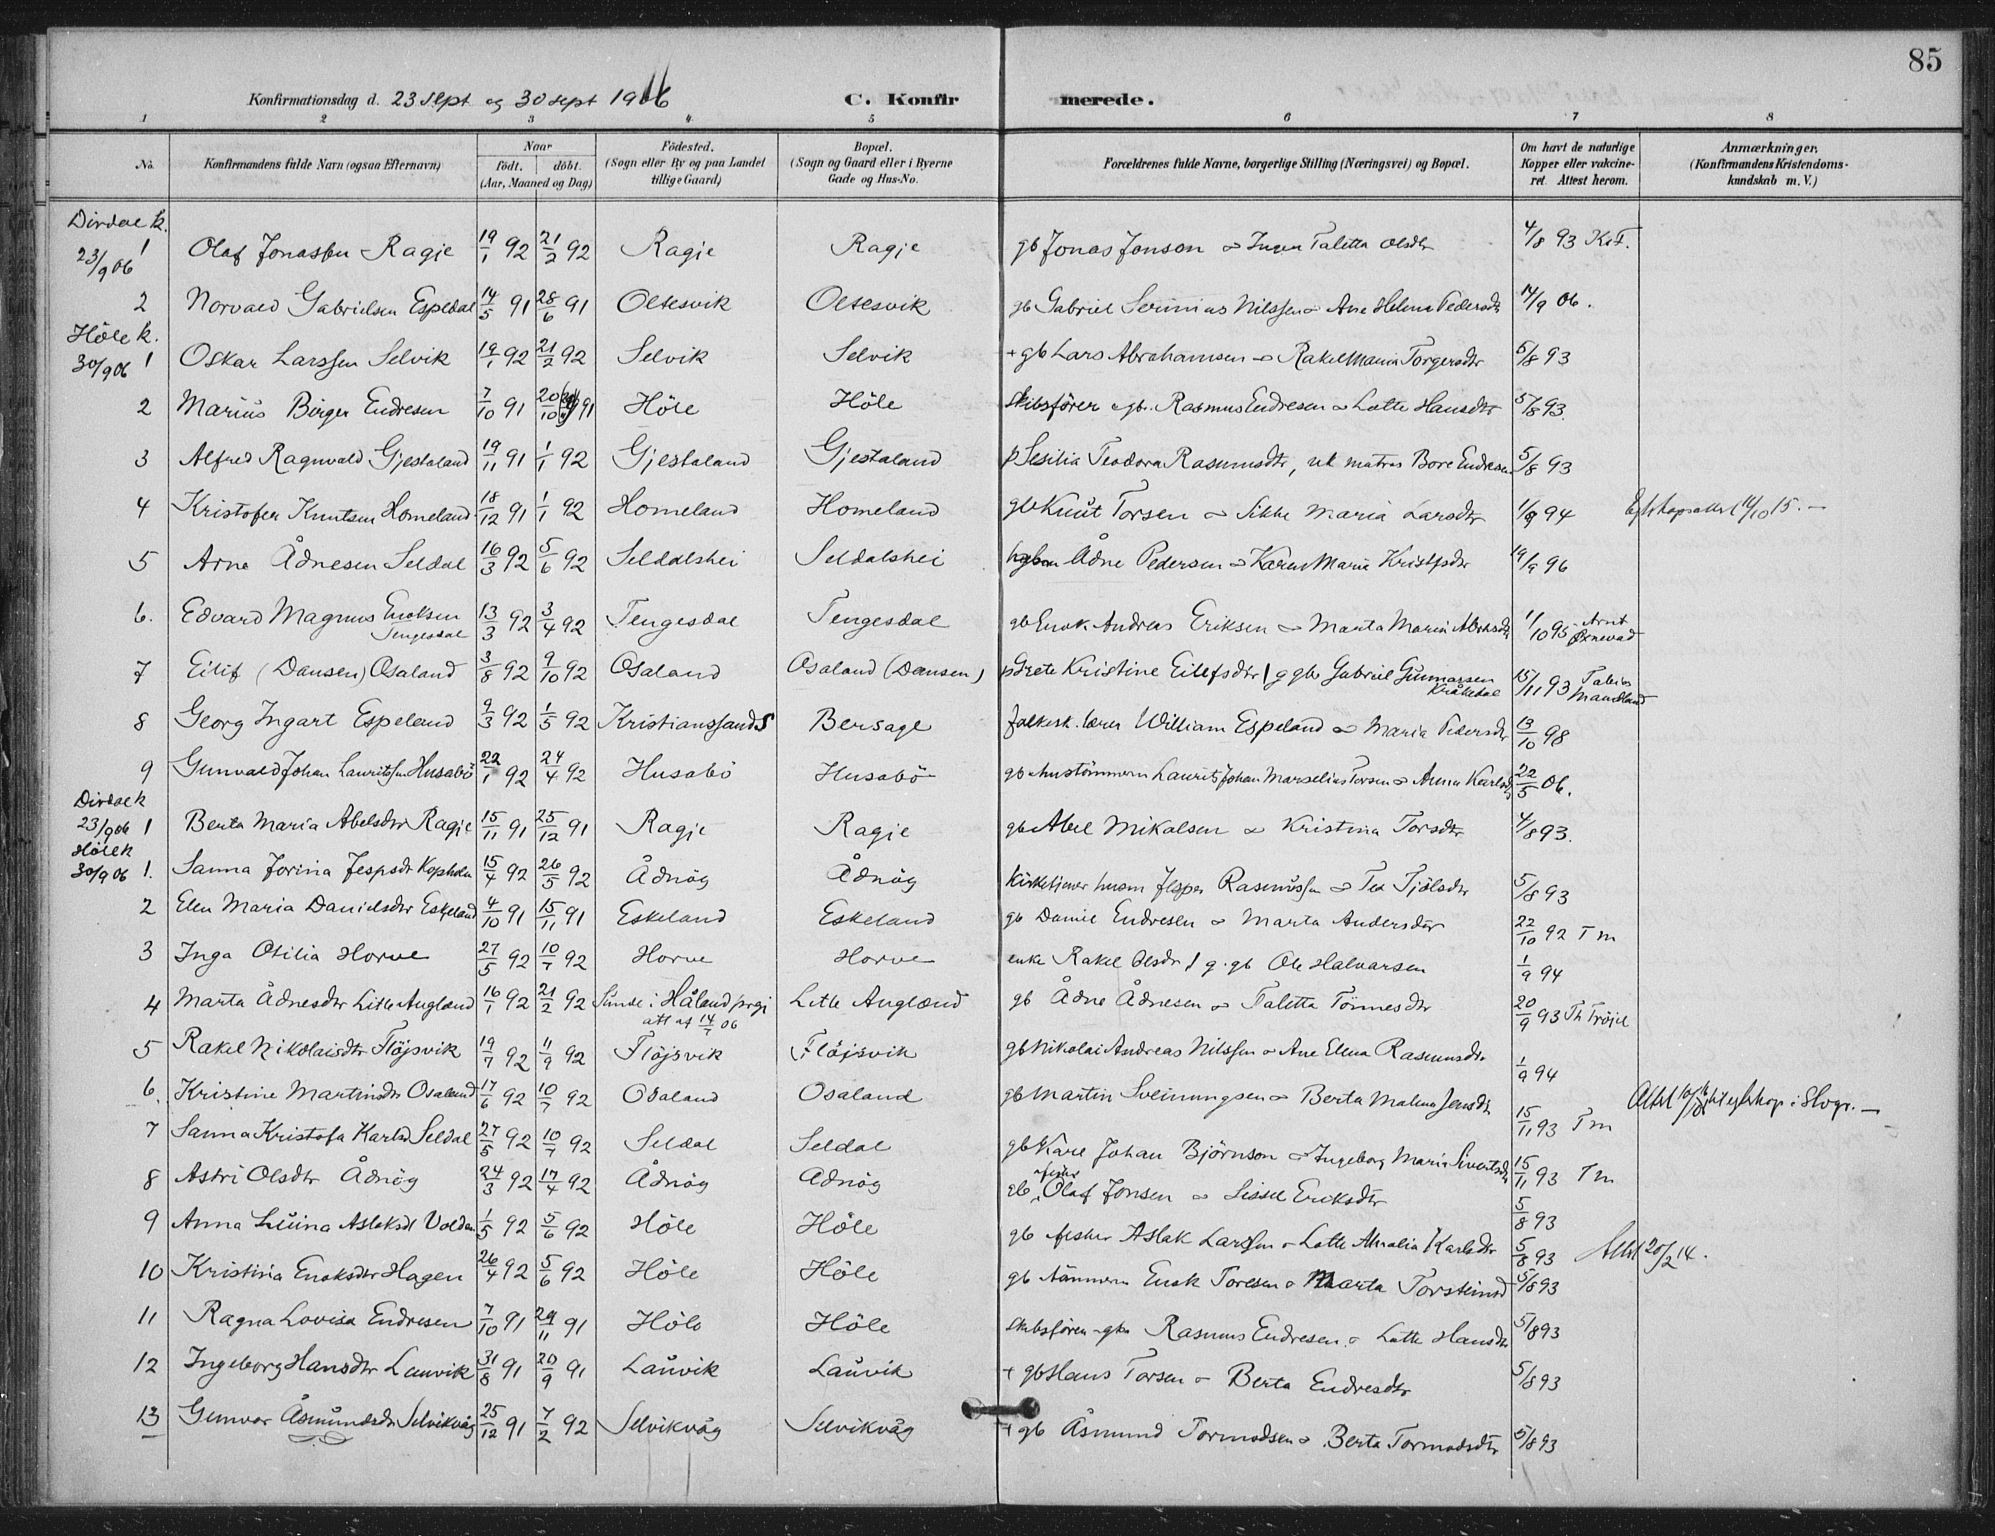 85
Konfirmationsdag d. 23 sept og 30 sept 1906 C. Konfirmerede.
1 2 3 4 5 6 7 8
No. Konfirmandens fulde Navn (ogsaa Efternavn) Naar födt. döbt. (Aar, Maaned og Dag) Födested. (Sogn eller By og paa Landet tillige Gaard) Bopæl. (Sogn og Gaard eller i Byerne Gade og Hus-No. Forældrenes fulde Navne, borgerlige Stilling (Næringsvei) og Bopæl. Om havt de naturlige Kopper eller vakcineret. Attest herom. Anmærkninger. (Konfirmandens Kristendomskundskab m. V.)
Dirdal k. 23/9 06
1 Olaf Jonassen Ragje 19/1 92 21/2 92 Ragje Ragje gb Jonas Jonson & Inger Taletta Olsdtr 4/8 93 K.F.
2 Norvald Gabrielsen Espedal 14/5 91 28/6 91 Oltesvik Oltesvik gb Gabriel Nilssen & Ane Helene Pedersdtr 14/9 06.
Höle k. 30/9 06
1 Oskar Larssen Selvik 19/1 92 21/2 92 Selvik Selvik + gb Lars Abrahamsen & Rakel Maria Torgersdtr 5/8 93
2 Marius Birger Endresen 7/10 91 20/10 91 Höle Höle Skibsförer gb. Rasmus Endresen & Lotte Hansdtr 5/8 93.
3 Alfred Ragnvald Gjestaland 19/11 91 1/1 92 Gjestaland Gjestaland p Sesilia Teodora Rasmusdtr, uk matros Bore Endresen 5/8 93
4 Kristofer Knutsen Homeland 18/12 91 1/1 92 Homeland Homeland gb Knut Torsen & Sikke Maria Larsdtr 1/9 94
5 Arne Ådnesen Seldal 16/3 92 5/6 92 Seldalshei Seldalshei Ådne Pedersen & Karen Marie 19/9 96
6. Edvard Magnus Enoksen Tengesdal 13/3 92 3/4 92 Tengesdal Tengesdal gb Enok Andreas Eriksen & Marta Maria 1/10 95 Arnt Ørnevad
7 Eilif (Dansen) Osaland 3/8 92 9/10 92 Osaland Osaland (Dansen) p Grete Kristine Eilefsdtr / g gb Gabriel Gunnarsen Kråkedal 15/11 93 Tobias Maudland
8 Georg Ingart Espeland 9/3 92 1/5 92 Kristianssands Bersage folkesk. lærer William Espeland & Maria Pedersdtr 13/10 98
9 Gunvald Johan Lauritssen Husabö 22/1 92 24/4 92 Husabö Husabö gb Laurits Johan Marselius Torsen & Anna Karlsdtr 22/5 06.
Dirdal k 23/9 06
1 Berta Maria Abelsdtr Ragje 15/11 91 25/12 91 Ragje Ragje gb Abel Mikalsen & Kristina Torsdtr 4/8 93.
Höle k 30/9 06
1. Sanna Jorina Jespsdtr Kopholen 15/4 92 26/5 92 Ådnöy Ådnöy kirketjener husm Jesper Rasmussen & 5/8 93
2 Elen Maria Danielsdtr Eskeland 4/10 91 15/11 91 Eskeland Eskeland gb Daniel Endresen & Marta Andersdtr 22/10 92 T M
3 Inga Otilia Horve 27/5 92 10/7 92 Horve Horve enke Rakel Olsdtr / g. gb Ole Halvarsen 1/9 94
4 Marta Ådnesdtr Litle Auglænd 16/1 92 21/2 92 Sunde i Håland prgj att af 14/7 06 Litle Auglænd gb Ådne Ådnesen & Taletta Tönnesdtr 20/9 93 Th Tröjel
5 Rakel Nikolaisdtr Flöjsvik 19/7 92 11/9 92 Flöjsvik Flöjsvik gb Nikolai Andreas Nilssen & Ane Elena Rasmusdtr 1/9 94
6. Kristine Martinsdtr Osaland 17/6 92 10/7 92 Osaland Osaland gb Martin Sveinungsen & Berta Malena Jensdtr 15/11 93 T M
7 Sanna Kristofa Karlsd Seldal 27/5 92 10/7 92 Seldal Seldal gb Karl Johan Björnson & Ingeborg Maria Sivertsdtr 15/11 93 T M
8 Astri Olsdtr Ådnöy 24/3 92 17/4 92 Ådnöy Ådnöy gb fisker Olaf Jonsen & Lissel Eriksdtr 5/8 93
9 Anna Asleksd Volden 1/5 92 5/6 92 Höle Höle gb fisker Aslak Larssen & Lotte Amalia Karlsdtr 5/8 93 Attest 20/2 14.
10 Kristina Enoksdtr Hagen 26/4 92 5/6 92 Höle Höle gb Enok Toresen & Marta Torsteinsd 5/8 93
11 Ragna Lovisa Endresen 7/10 91 29/11 91 Höle Höle skibsförer Rasmus Endresen & Lotte Hansdtr 5/8 93
12 Ingeborg Hansdtr Lauvik 31/8 91 20/9 91 Lauvik Lauvik + gb Hans Torsen & Berta Endresdtr 5/8 93
13 Gunvor Åsmundsdtr Selvikvåg 25/12 91 7/2 92 Selvikvåg Selvikvåg + gb Åsmund Tormodsen & Berta Tormodsdtr 5/8 93